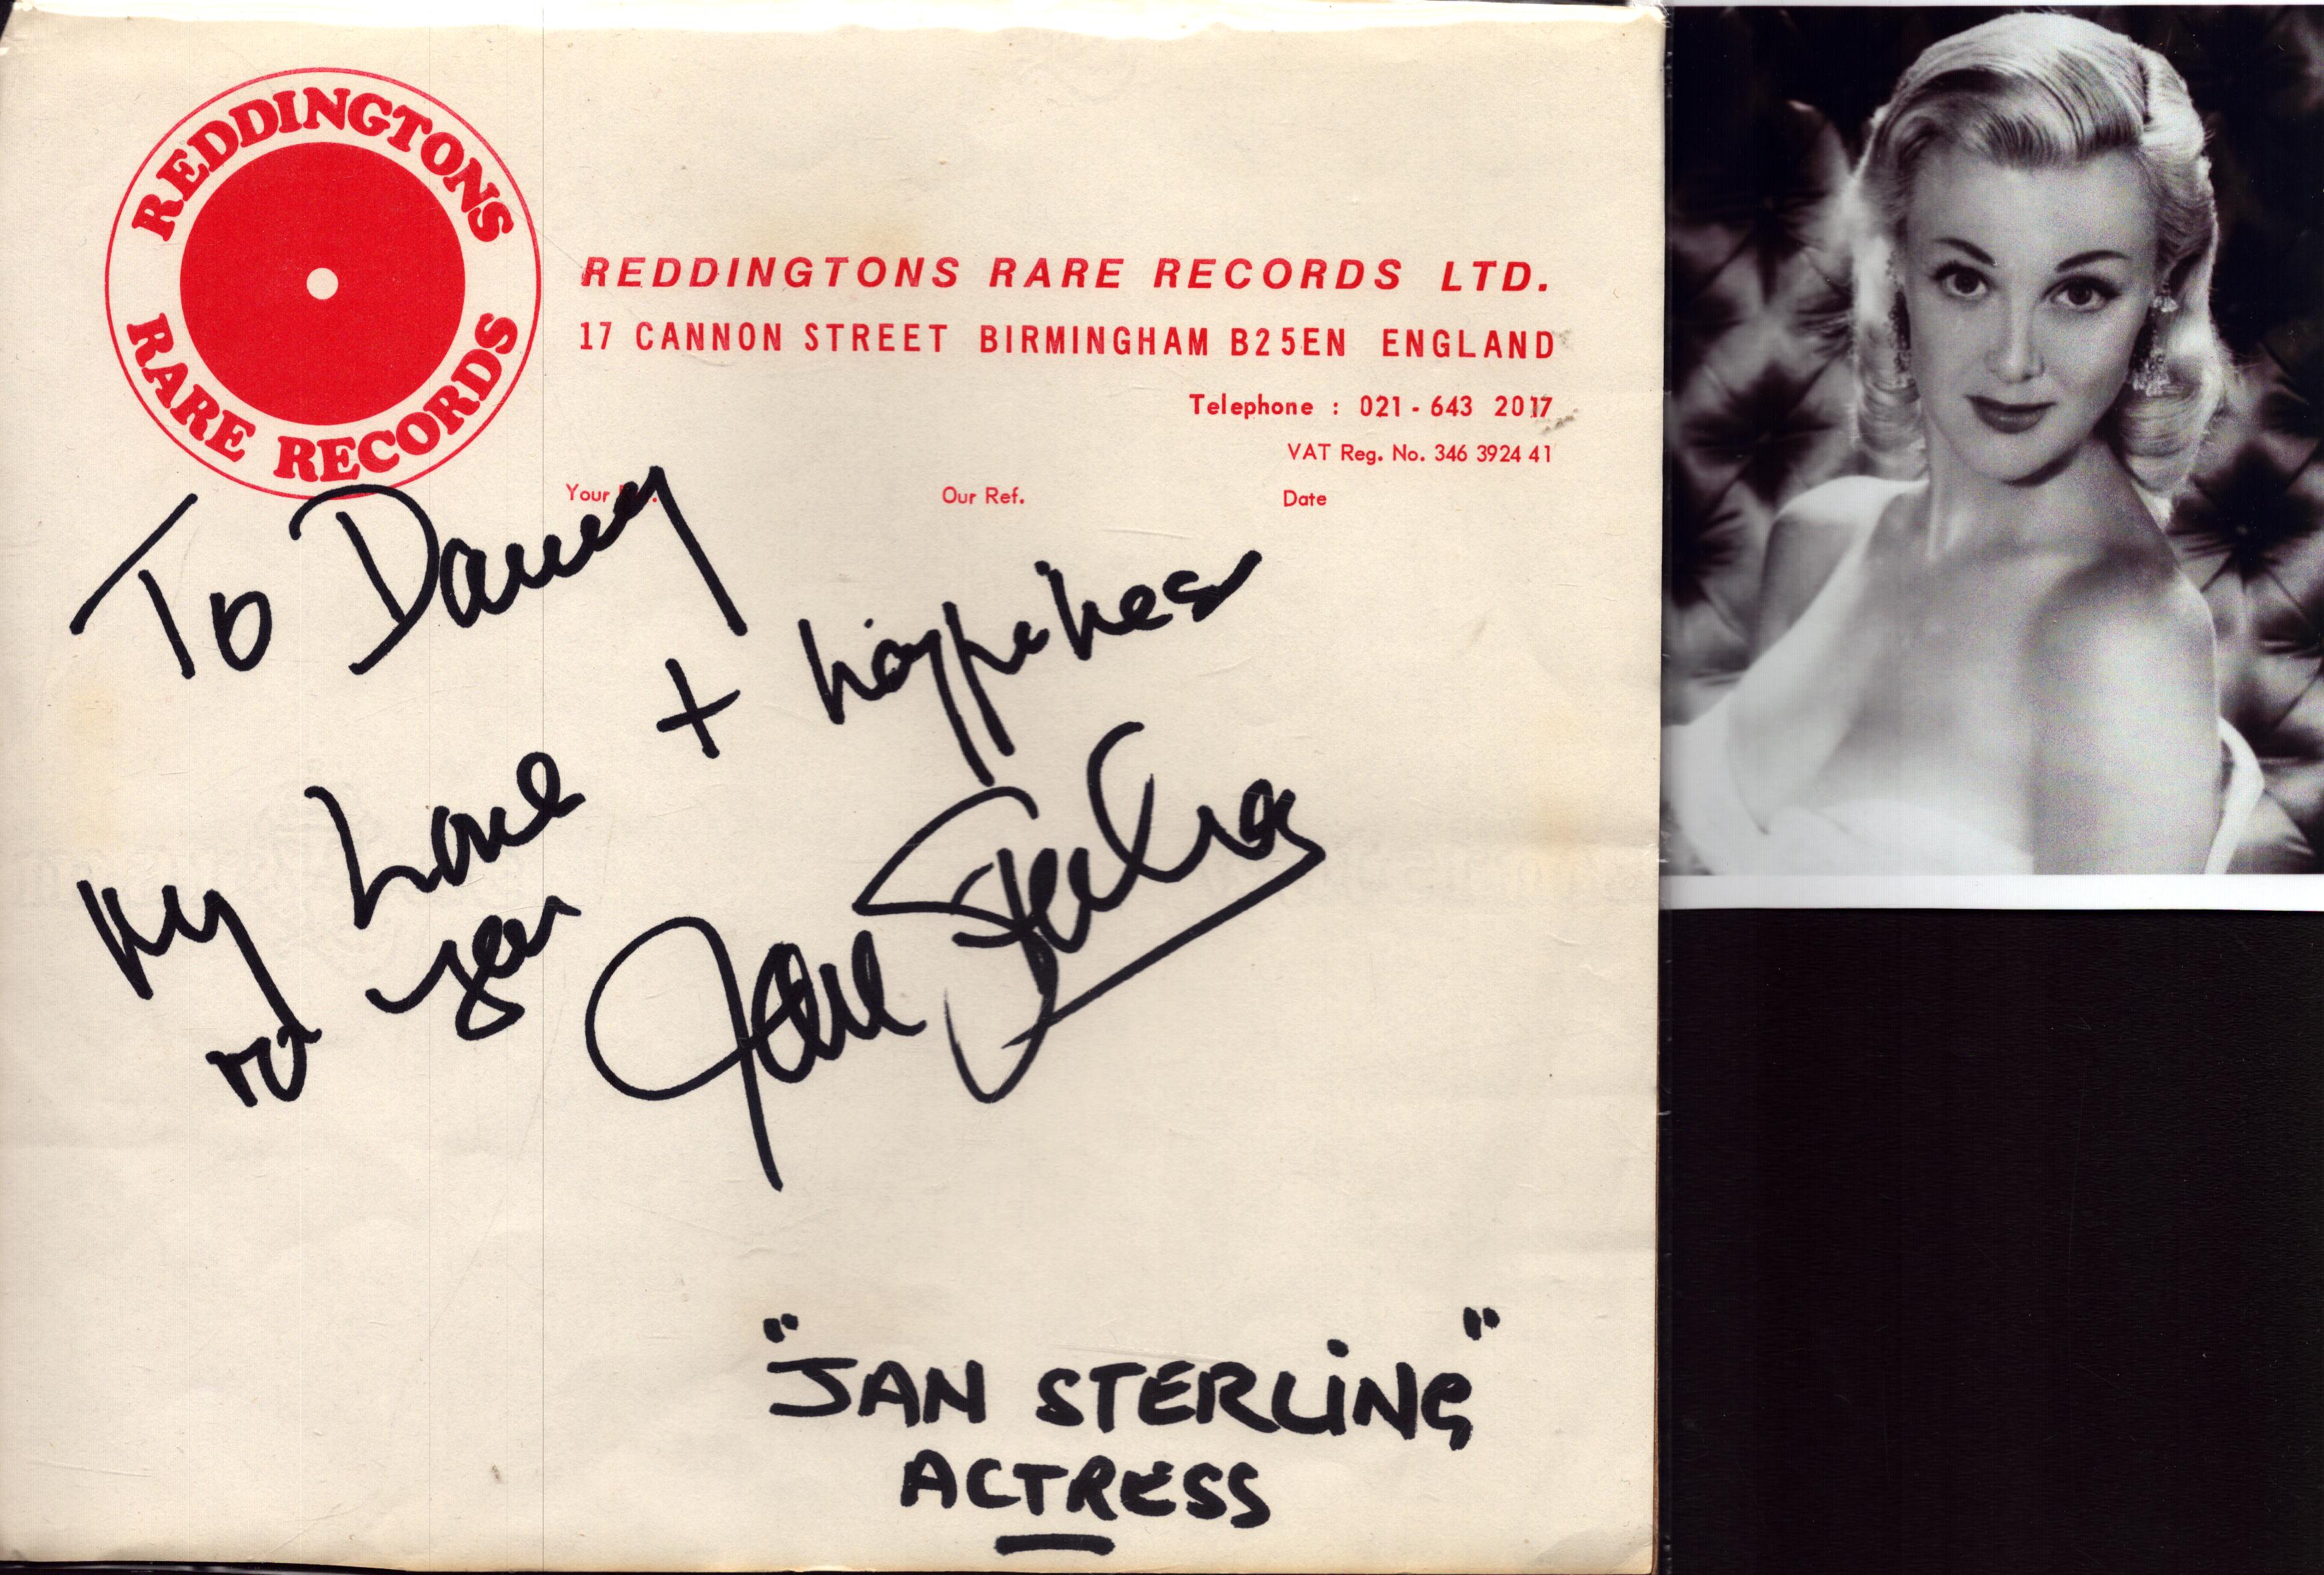 REDDINGTONS
RARE RECORDS
REDDINGTONS RARE RECORDS LTD.
17 CANNON STREET BIRMINGHAM B2 5EN ENGLAND
Telephone : 021 - 643 2017
VAT Reg. No. 346 3924 41
Your
Our Ref.
Date
To Danny
My Love + happiness
to you
Jan Sterling
"JAN STERLING"
ACTRESS